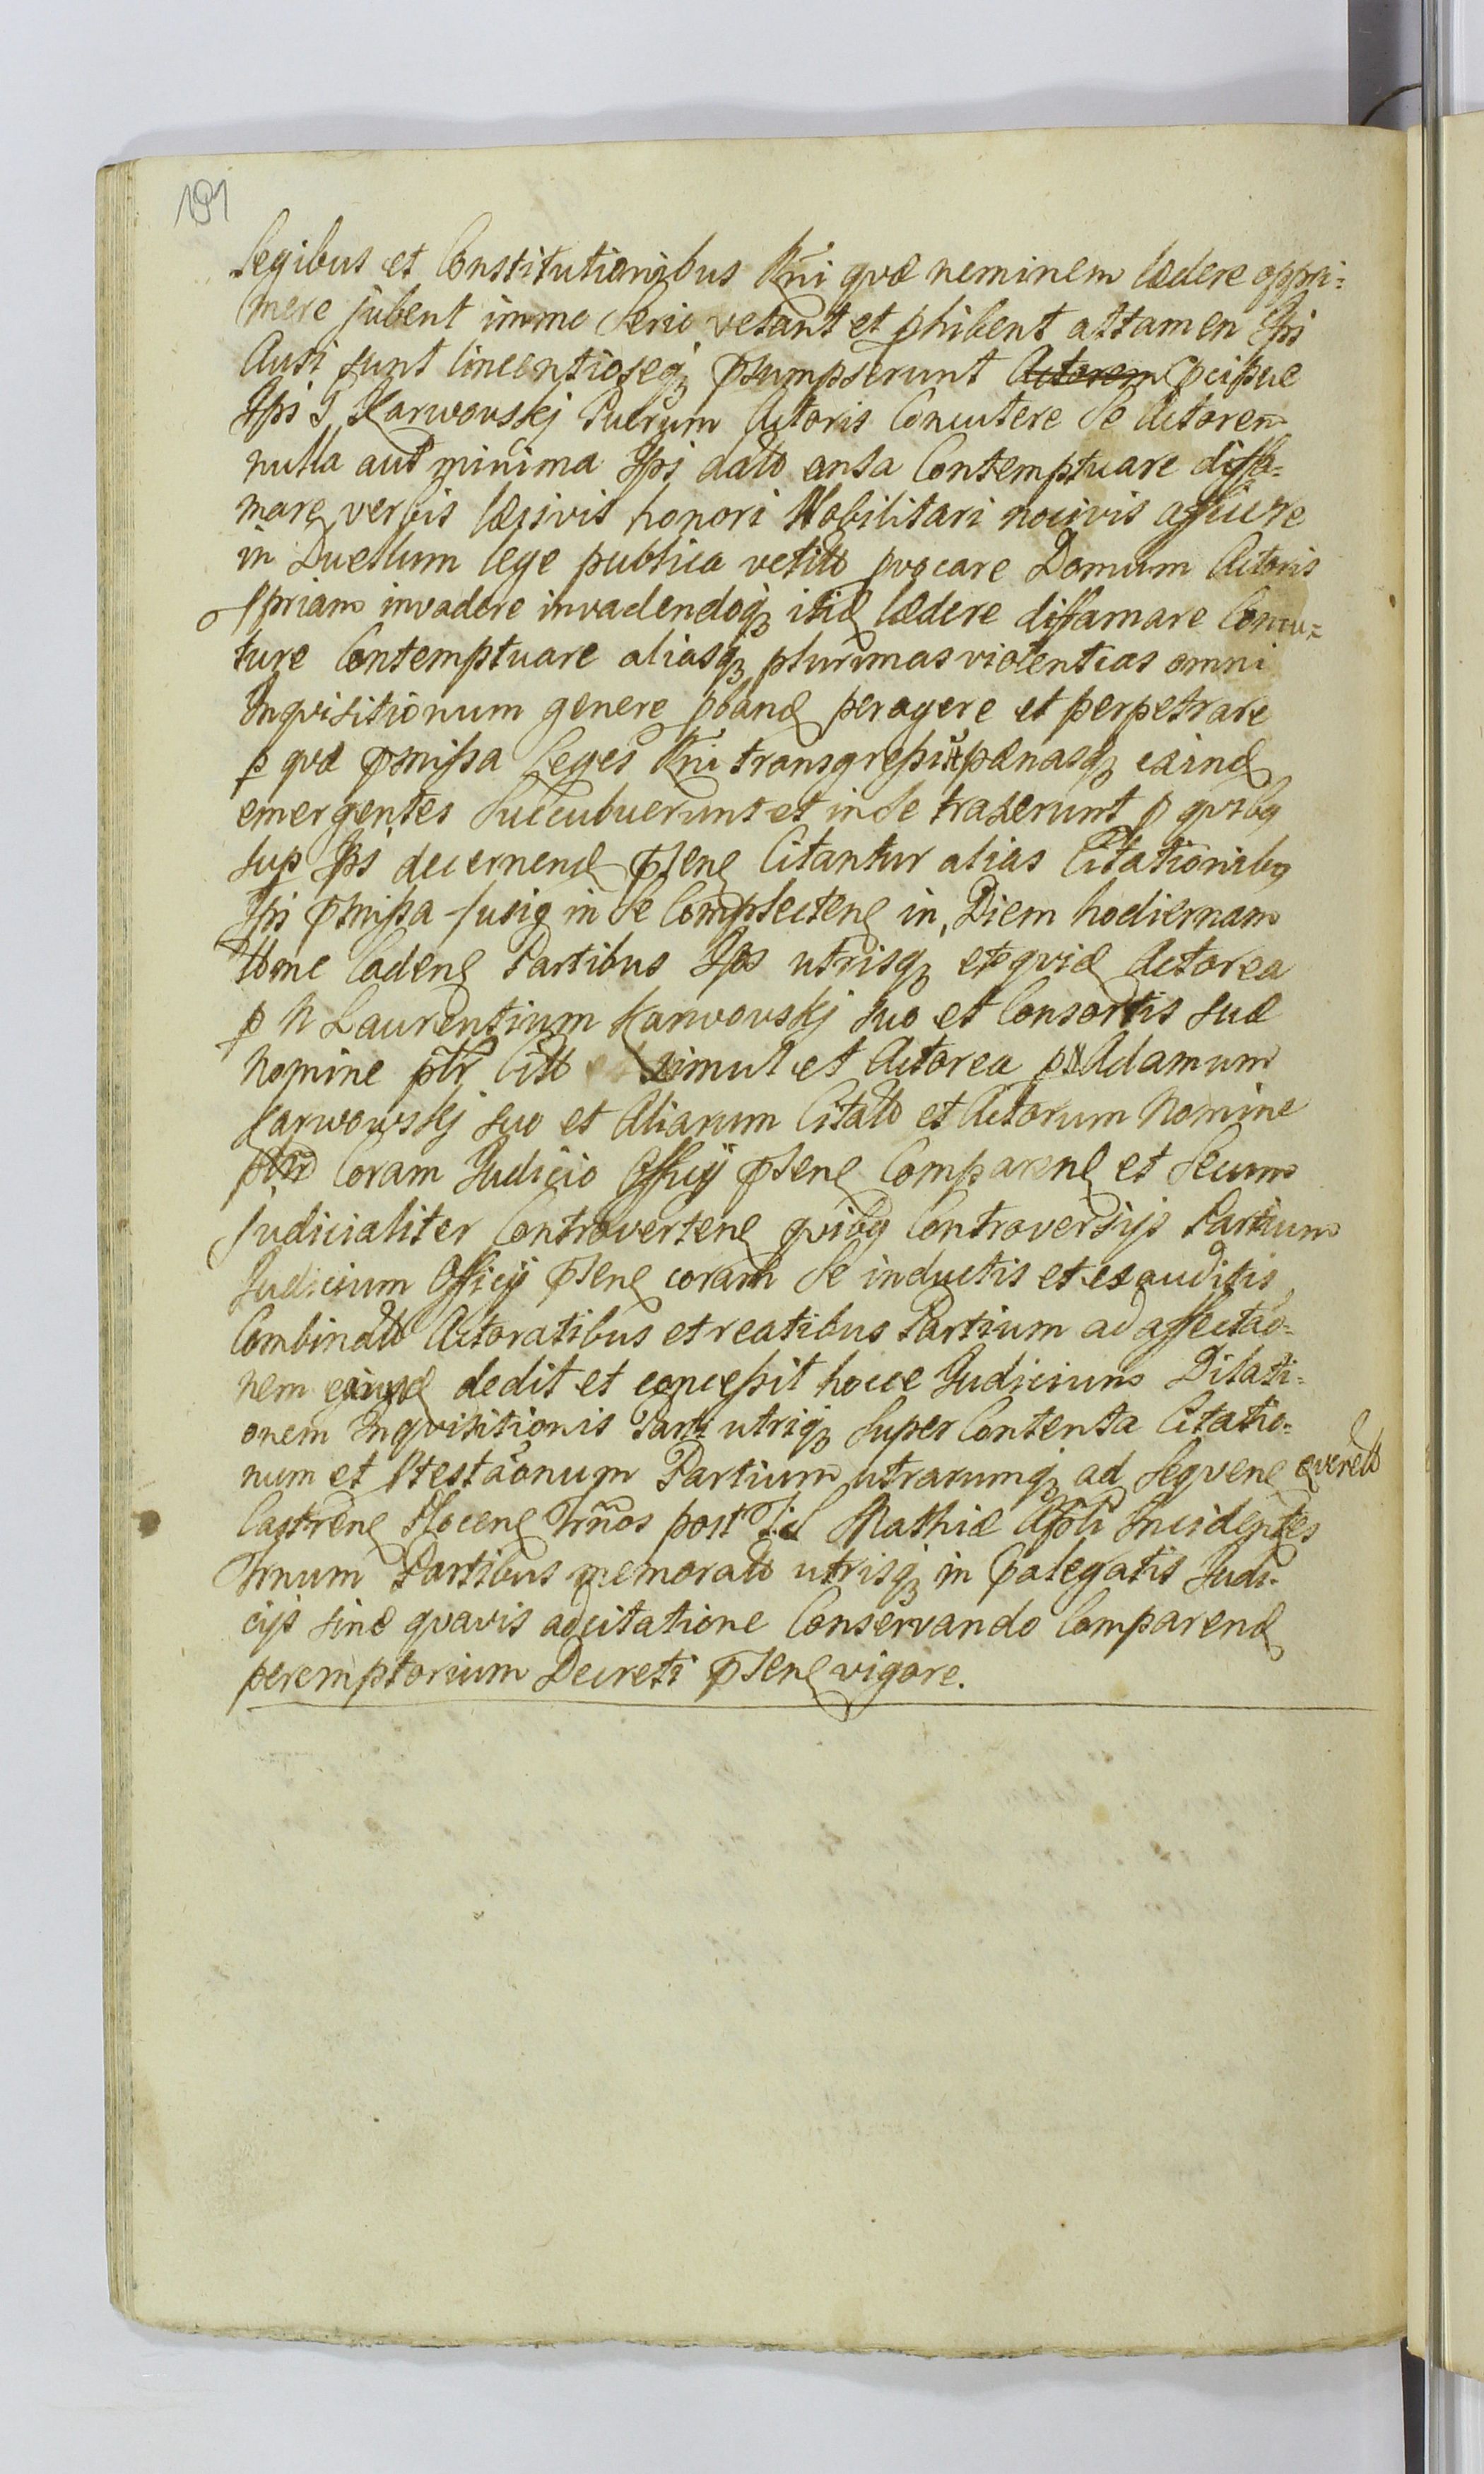 191
Legibus et Constitutionibus Rñi qvæ neminem lædere oppri=
mere jubent immo Serio vetant et phibent attamen Ipsi
Ausi sunt lincentioseq₃ psumpserunt Actorem pcipue
Ipsi G Karwovskj Puerum Actoris Concutere Se Actorem
nulla aut minima Ipsi data ansa Contemptuare diffa=
mare verbis læsivis honori Nobilitari nocivis afficere
in Duellum lege publica vetito pvocare Domum Actoris
ppriam invadere invadendoq₃ ibid lædere diffamare Concu=
ture Contemptuare aliasq₃ plurimas violentias omni
Inqvisitionum genere pband peragere et perpetrare
p qvæ pmissa Leges Rñi transgressi pænasq₃ exind
emergentes Succubuerunt et in Se traxerunt p qvibq
sup Ipsi decernend psent Citantur alias Citationibq
Ipsi pmissa fusiq in Se Complectent in Diem hodiernam
Cadent Partibus Ipsis utrisq₃ eteqvid Actorea
p N Laurentium Karwovskj suo et Consortis suæ
Nomine ptr Citta simul et Actorea p N Adamum
Karwowskj suo et Aliarum Citato et Actorum Nomine
Coram Judicio Officij psent Comparent et Secum
Judicialiter Controvertent qvibq Controversijs Partium
Judicium Officij psent coram Se inductis et exauditis
Combinatto Actoratibus et reatibus Partium ad affectao=
nem eaund dedit et concessit hocce Judicium Dilati=
onem Inqvisitionis Parti utriq₃ Super Contenta Citatio=
num et Ptestaõnum Partium utrarumq₃ ad Seqvent qverell
Castrent Vocent Trños post F. S Mathiæ Apłi Incidentes
Trnum Partibus memorato utrisq₃ in palegatis Judi=
cijs sine qvavis adcitatione Conservando Comparend
peremptorium Decreti psent vigore.